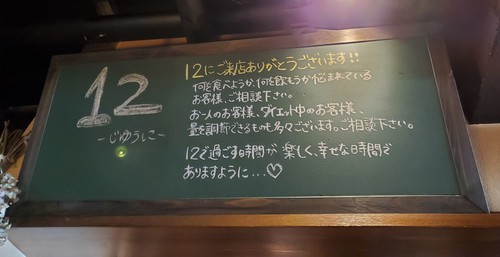 12
-じゅうに-
12にご来店ありがとうございます!!
何を食べようか、何を飲もうか悩まれている
お客様、ご相談下さい。
お一人のお客様、ダイエット中のお客様、
量を調節できるものも多々ございます。ご相談下さい。
12で過ごす時間が楽しく、幸せな時間で
ありますように...♡